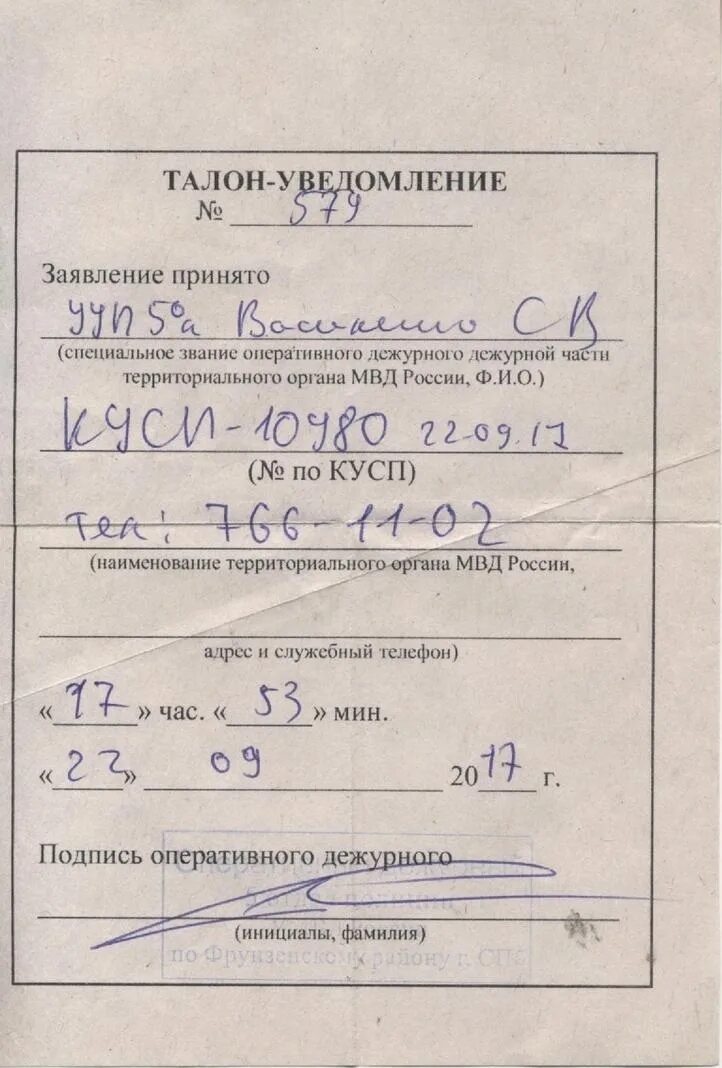 ТАЛОН-УВЕДОМЛЕНИЕ
№ 579
Заявление принято
УУП 5 о/а СВ
(специальное звание оперативного дежурного дежурной части
территориального органа МВД России, Ф.И.О.)
КУСП-10980 22.09.17
(№ по КУСП)
тел: 766-11-02
(наименование территориального органа МВД России,
адрес и служебный телефон)
«17» час. «53» мин.
«22» 09 2017 г.
Подпись оперативного дежурного
Оперативный дежурный
5 отдел полиции
(инициалы, фамилия)
по Фрунзенскому району г. СПб